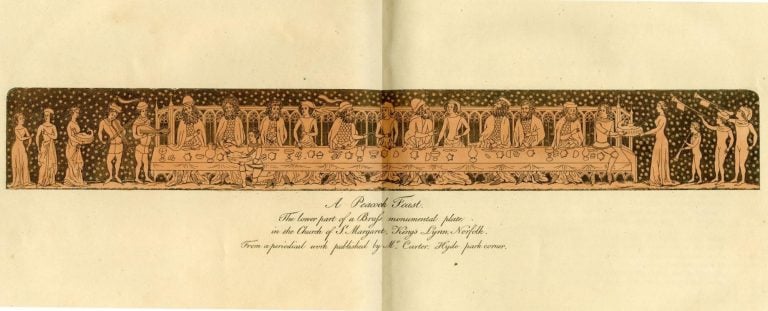 A Peacock Feast.
The lower part of a Brass monumental plate
in the Church of St. Margaret, Kings Lynn, Norfolk.
From a periodical work published by Mr. Carter, Hyde park corner.